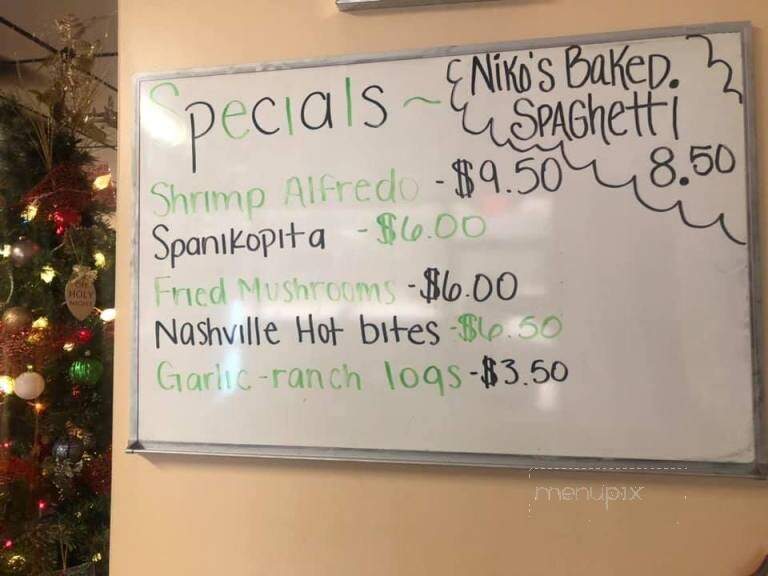 Specials ~
Niko's Baked.
Spaghetti
8.50
Shrimp Alfredo - $9.50
Spanikopita - $6.00
Fried Mushrooms - $6.00
Nashville Hot bites - $6.50
Garlic-ranch logs - $3.50
OH
HOLY
NIGHT
menupix